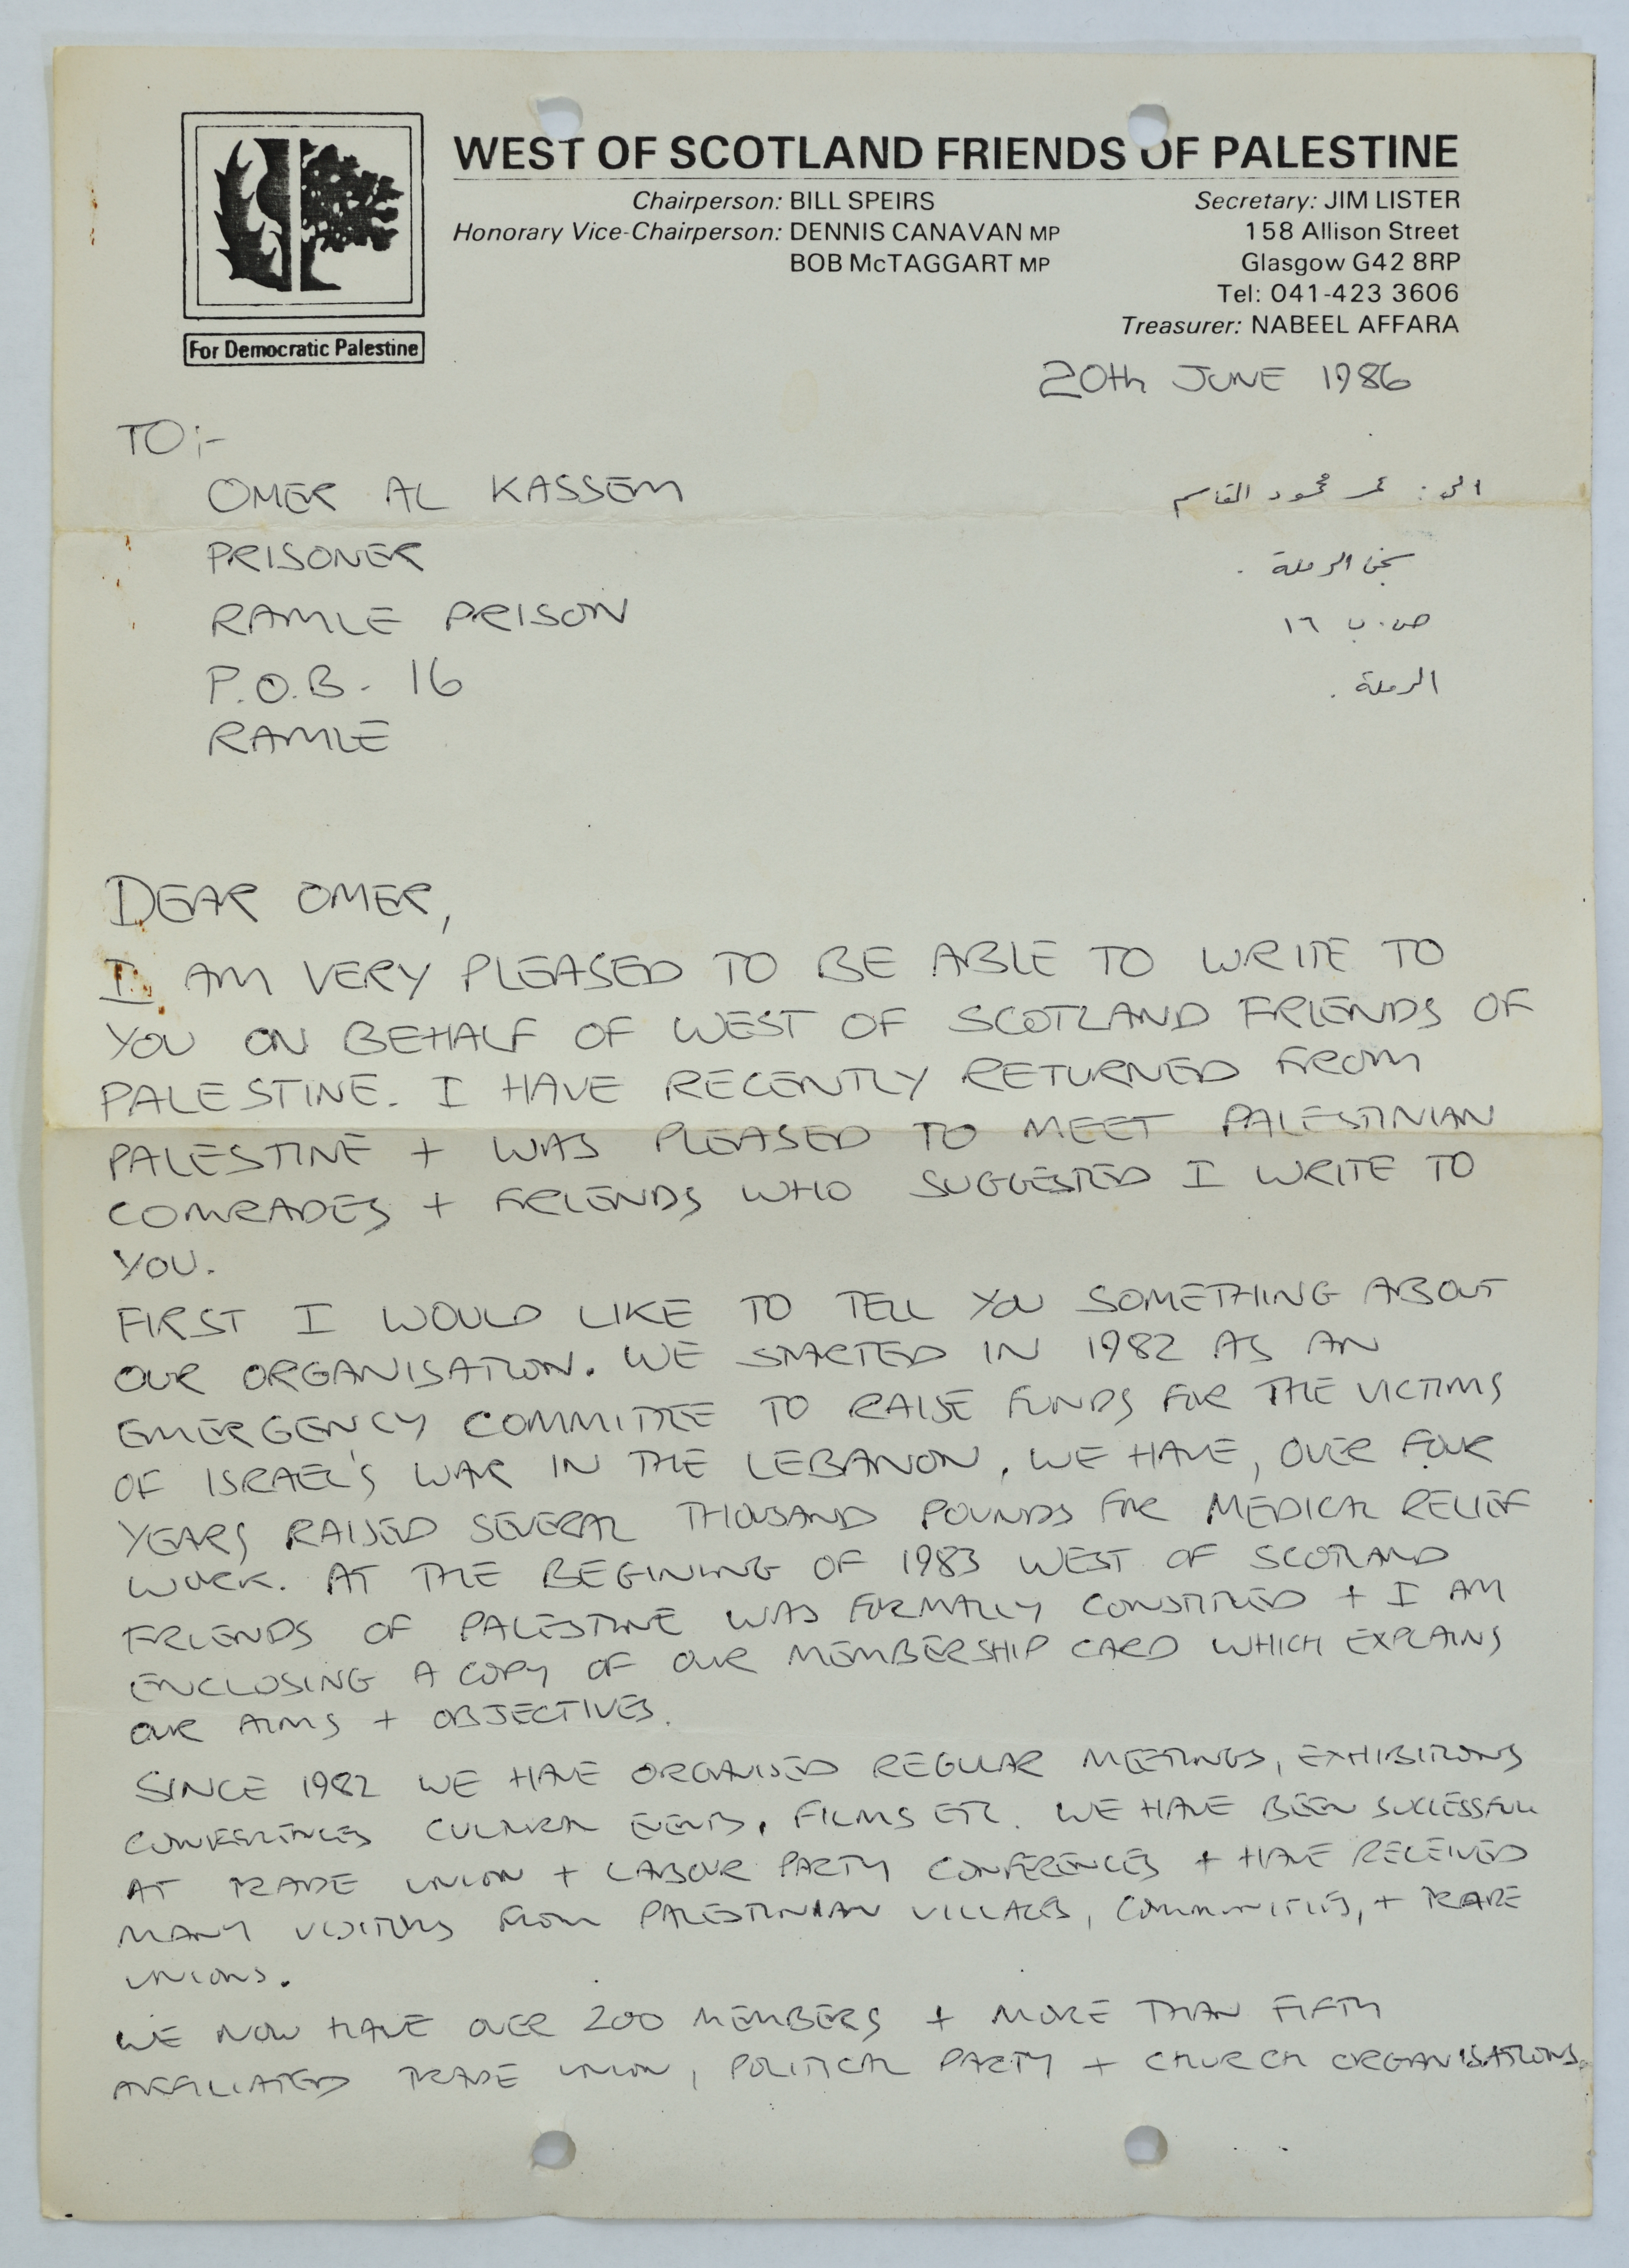 WEST OF SCOTLAND FRIENDS OF PALESTINE
Chairperson: BILL SPEIRS
Honorary Vice-Chairperson: DENNIS CANAVAN MP
BOB McTAGGART MP
Secretary: JIM LISTER
158 Allison Street
Glasgow G42 8RP
Tel: 041-423 3606
Treasurer: NABEEL AFFARA
For Democratic Palestine
20th JUNE 1986
TO:-
OMER AL KASSEM
PRISONER
RAMLE PRISON
P.O.B. 16
RAMLE
الى : عمر محمود القاسم
سجن الرملة .
ص.ب ١٦
الرملة .
DEAR OMER,
I AM VERY PLEASED TO BE ABLE TO WRITE TO
YOU ON BEHALF OF WEST OF SCOTLAND FRIENDS OF
PALESTINE. I HAVE RECENTLY RETURNED FROM
PALESTINE + WAS PLEASED TO MEET PALESTINIAN
COMRADES + FRIENDS WHO SUGGESTED I WRITE TO
YOU.
FIRST I WOULD LIKE TO TELL YOU SOMETHING ABOUT
OUR ORGANISATION. WE STARTED IN 1982 AS AN
EMERGENCY COMMITTEE TO RAISE FUNDS FOR THE VICTIMS
OF ISRAEL'S WAR IN THE LEBANON. WE HAVE, OVER FOUR
YEARS RAISED SEVERAL THOUSAND POUNDS FOR MEDICAL RELIEF
WORK. AT THE BEGINING OF 1983 WEST OF SCOTLAND
FRIENDS OF PALESTINE WAS FORMALLY CONSTITUTED + I AM
ENCLOSING A COPY OF OUR MEMBERSHIP CARD WHICH EXPLAINS
OUR AIMS + OBJECTIVES.
SINCE 1982 WE HAVE ORGANISED REGULAR MEETINGS, EXHIBITIONS
CONFERENCES CULTURAL EVENTS, FILMS ETC. WE HAVE BEEN SUCCESSFULL
AT TRADE UNION + LABOUR PARTY CONFERENCES + HAVE RECEIVED
MANY VISITORS FROM PALESTINIAN VILLAGES, COMMUNITIES, + TRADE
UNIONS.
WE NOW HAVE OVER 200 MEMBERS + MORE THAN FIFTY
AFFILIATED TRADE UNION, POLITICAL PARTY + CHURCH ORGANISATIONS.